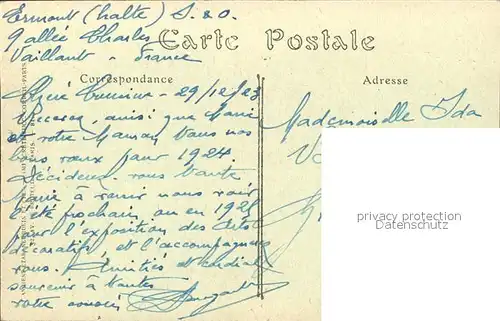 Ermont (halte) S. & O.
9 allée Charles
Vaillant - France
Carte Postale
Correspondance
Adresse
29/12/23
ainsi que Marie
et votre Maman tous nos
bons vœux pour 1924.
Décidez-vous tante
Marie à venir nous voir
l'été prochain ou en 1925
pour l'exposition des Arts
décoratifs et l'accompagner
vous. Amitiés et cordial
souvenir à toutes
votre cousin
Mademoiselle Ida
privacy protection
Datenschutz